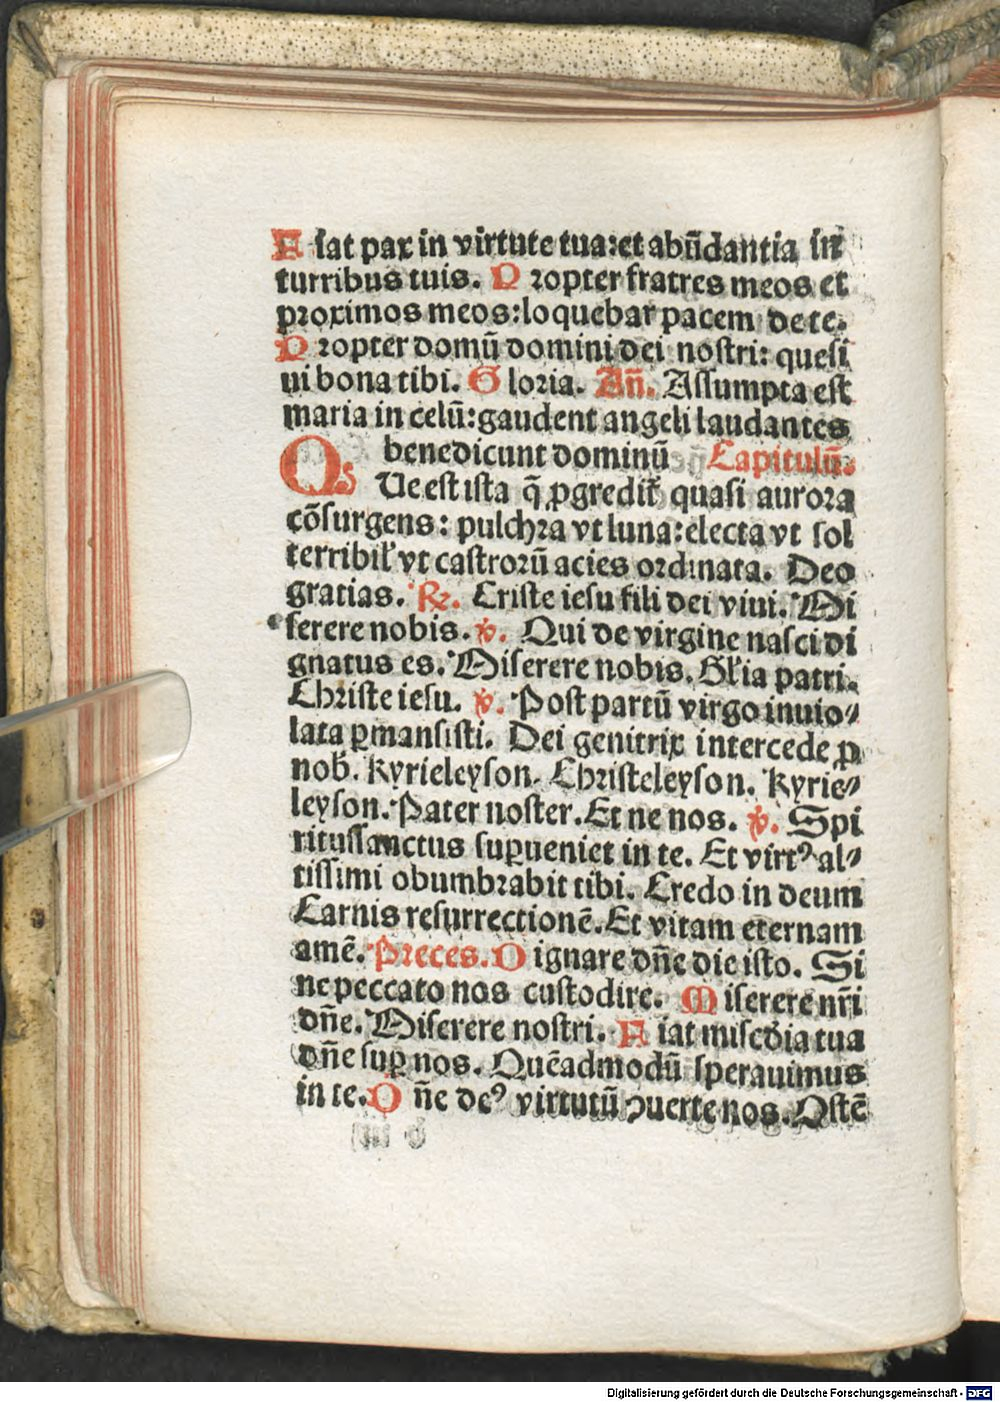 Fiat pax in virtute tua:et abūdantia in
turribus tuis. Propter fratres meos et
proximos meos:loquebar pacem de te.
Propter domū domini dei nostri: quesi
ui bona tibi. Gloria. Añ. Assumpta est
maria in celū:gaudent angeli laudantes
benedicunt dominū Capitulū.
QUe est ista q̄ ꝓgredit̉ quasi aurora
cōsurgens: pulchra vt luna:electa vt sol
terribil̉ vt castrorū acies ordinata. Deo
gratias. ℟. Criste iesu fili dei viui. Mi
serere nobis. ℣. Qui de virgine nasci di
gnatus es. Miserere nobis. Gl̉ia patri.
Christe iesu. ℣. Post partū virgo inuio⸗
lata ꝑmansisti. Dei genitrix intercede ꝓ
nob̉. Kyrieleyson. Christeleyson. Kyrie⸗
leyson. Pater noster. Et ne nos. ℣. Spi
ritussanctus suꝑueniet in te. Et virtꝰ al⸗
tissimi obumbrabit tibi. Credo in deum
Carnis resurrectionē. Et vitam eternam
amē. Preces. Dignare dñe die isto. Si
ne peccato nos custodire. Miserere nr̄i
dñe. Miserere nostri. Fiat mis̄cdia tua
dñe suꝑ nos. Quēadmodū sperauimus
in te. Dñe deꝰ virtutū ꝯuerte nos. Ostē
Digitalisierung gefördert durch die Deutsche Forschungsgemeinschaft - DFG